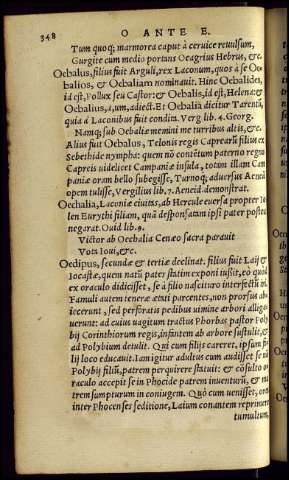 348
O ANTE E.
Tum quoq; marmorea caput à ceruice reuulsum,
Gurgite cum medio portans Oeagrius Hebrus, &c.
Oebalus, filius fuit Arguli, rex Laconum, quos à se Oe-
balios, & Oebaliam nominauit. Hinc Oebalides,
id est, Pollux seu Castor & Oebalis, id est, Helena: &
Oebalius, a, um, adiect. Et Oebalia dicitur Tarentũ,
quia à Laconibus fuit condita. Verg. lib. 4. Georg.
Namq; sub Oebaliæ memini me turribus altis, &c.
Alius fuit Oebalus, Telonis regis Caprearũ filius ex
Sebethide nympha: quem nõ contẽtum paterno regno
Capreis uidelicet Campaniæ insula, totam illam Cam
paniæ oram bello subegisse, Turnoq; aduersus Aeneã
opem tulisse, Vergilius lib. 7. Aeneid. demonstrat.
Oechalia, Laconiæ ciuitas, ab Hercule euersa propter Io-
len Eurythi filiam, quã desponsatam ipsi pater postea
negarat. Ouid. lib. 9.
Victor ab Oechalia Cenæo sacra parauit
Vota Ioui, &c.
Oedipus, secundæ & tertiæ declinat. filius fuit Laij &
Iocastæ, quem natũ pater statim exponi iußit, eò quod
ex oraculo didicisset, se à filio nascituro interfectũ iri.
Famuli autem teneræ ætati parcentes, non prorsus ab-
iecerunt, sed perforatis pedibus uimine arbori alliga-
uerunt: ad cuius uagitum tractus Phorbas pastor Poly
bij Corinthiorum regis, infantem ab arbore sustulit, &
ad Polybium detulit. Qui cum filijs careret, ipsum fi-
lij loco educauit. Iam igitur adultus cum audisset se nõ
Polybij filiũ, patrem perquirere statuit: & cõsulto o-
raculo accepit se in Phocide patrem inuenturũ, & ma
trem sumpturum in coniugem. Quò cum uenisset, orta
inter Phocenses seditione, Laium conantem reprimere
tumultum,